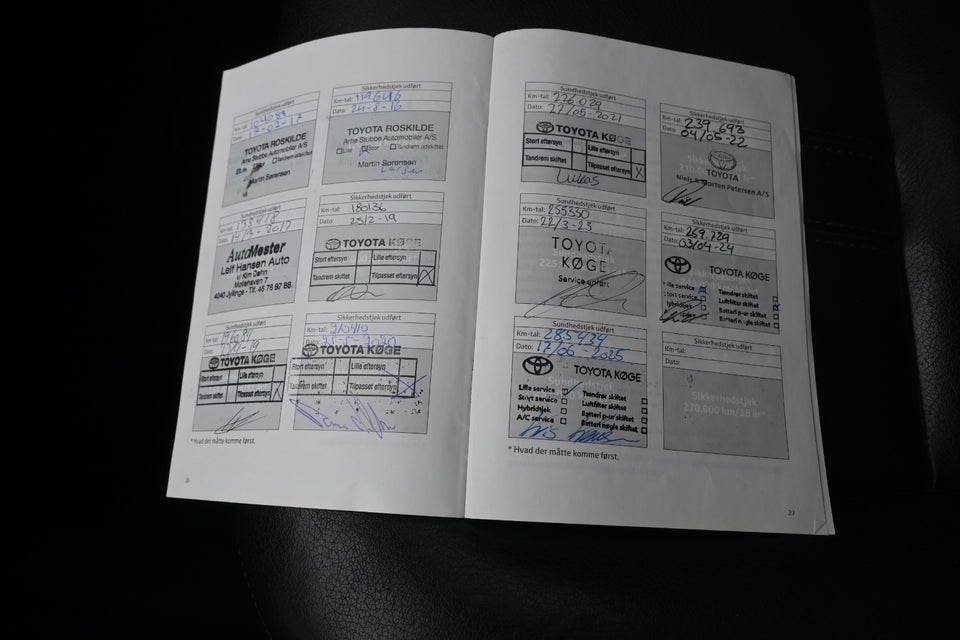 Sundhedstjek udført
Km-tal:
Dato:
TOYOTA ROSKILDE
Arne Stubbe Automobiler A/S
Tandrem udskiftet
Martin Sørensen
Sikkerhedstjek udført
Km-tal: 119646
Dato: 24-8-16
TOYOTA ROSKILDE
Arne Stubbe Automobiler A/S
Lille Stor Tandrem udskiftet
Martin Sørensen
Sundhedstjek udført
Km-tal:
Dato:
AutoMester
Leif Hansen Auto
v/ Kim Dehn
Møllehaven 7
4040 Jyllinge - Tlf. 46 78 97 88
Sikkerhedstjek udført
Km-tal: 180136
Dato: 25/2-19
TOYOTA KØGE
Stort eftersyn Lille eftersyn
Tandrem skiftet Tilpasset eftersyn X
Sundhedstjek udført
Km-tal:
Dato:
TOYOTA KØGE
Stort eftersyn Lille eftersyn
Tandrem skiftet Tilpasset eftersyn X
Sikkerhedstjek udført
Km-tal:
Dato:
TOYOTA KØGE
Stort eftersyn Lille eftersyn
Tandrem skiftet Tilpasset eftersyn X
* Hvad der måtte komme først.
26
Sundhedstjek udført
Km-tal: 226.029
Dato: 27/05-2021
TOYOTA KØGE
Stort eftersyn Lille eftersyn
Tandrem skiftet Tilpasset eftersyn X
Lukas
Sikkerhedstjek udført
Km-tal: 239.693
Dato: 04/05-22
TOYOTA
Niels & Morten Petersen A/S
Sundhedstjek udført
Km-tal: 255330
Dato: 22/3-23
TOYOTA
KØGE
Service udført
Sikkerhedstjek udført
Km-tal: 269.229
Dato: 03/04-24
TOYOTA KØGE
Lille service Tændrør skiftet
Stort service Luftfilter skiftet
Hybridtjek Batteri p-ur skiftet
Batteri nøgle skiftet
Sundhedstjek udført
Km-tal: 285434
Dato: 17/06-2025
TOYOTA KØGE
Lille service Tændrør skiftet
Stort service Luftfilter skiftet
Hybridtjek Batteri p-ur skiftet
A/C service Batteri nøgle skiftet
Sikkerhedstjek udført
Km-tal:
Dato:
Sikkerhedstjek
270.000 km/18 år*
* Hvad der måtte komme først.
27